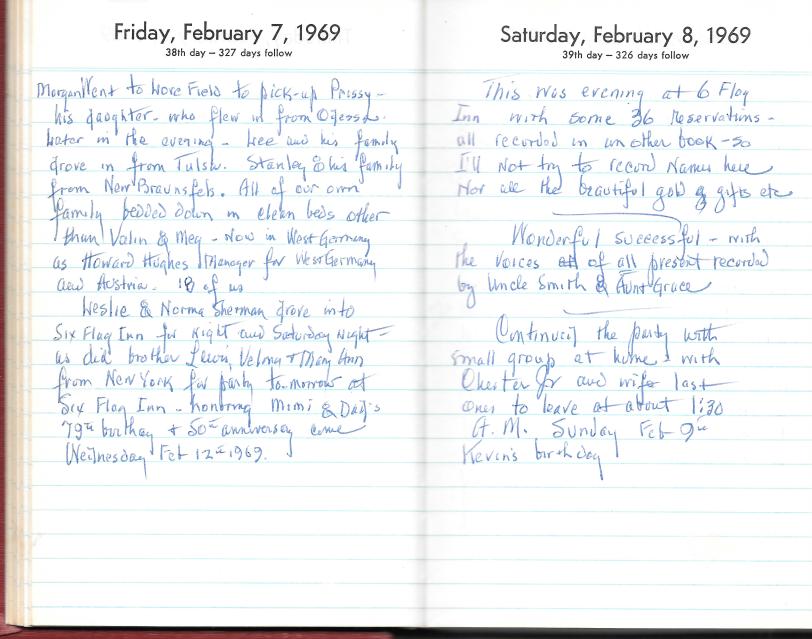 Friday, February 7, 1969
38th day – 327 days follow
Morgan Went to Love Field to pick-up Prissy -
his daughter - who flew in from Odessa.
Later in the evening - Lee and his family
drove in from Tulsa. Stanley & his family
from New Braunfels. All of our own
family bedded down in clean beds other
than Valin & Meg - Now in West Germany
as Howard Hughes Manager for West Germany
and Austria. 18 of us
Leslie & Norma Sherman drove into
Six Flag Inn for Night and Saturday Night -
as did brother Lewis, Velma & Mary Ann
from New York for party to-morrow at
Six Flag Inn - honoring Mimi & Dad's
79th birthday & 50th anniversary come
Wednesday Feb 12th 1969.
Saturday, February 8, 1969
39th day – 326 days follow
This was evening at 6 Flag
Inn with some 36 reservations -
all recorded in an other book - so
I'll Not try to record Names here
Nor all the beautiful gold gifts etc
Wonderful successful - with
the voices of all present recorded
by Uncle Smith & Aunt Grace
Continued the party with
small group at home with
Chester Jr and wife last
ones to leave at about 1:30
A.M. Sunday Feb 9th
Kevin's birthday